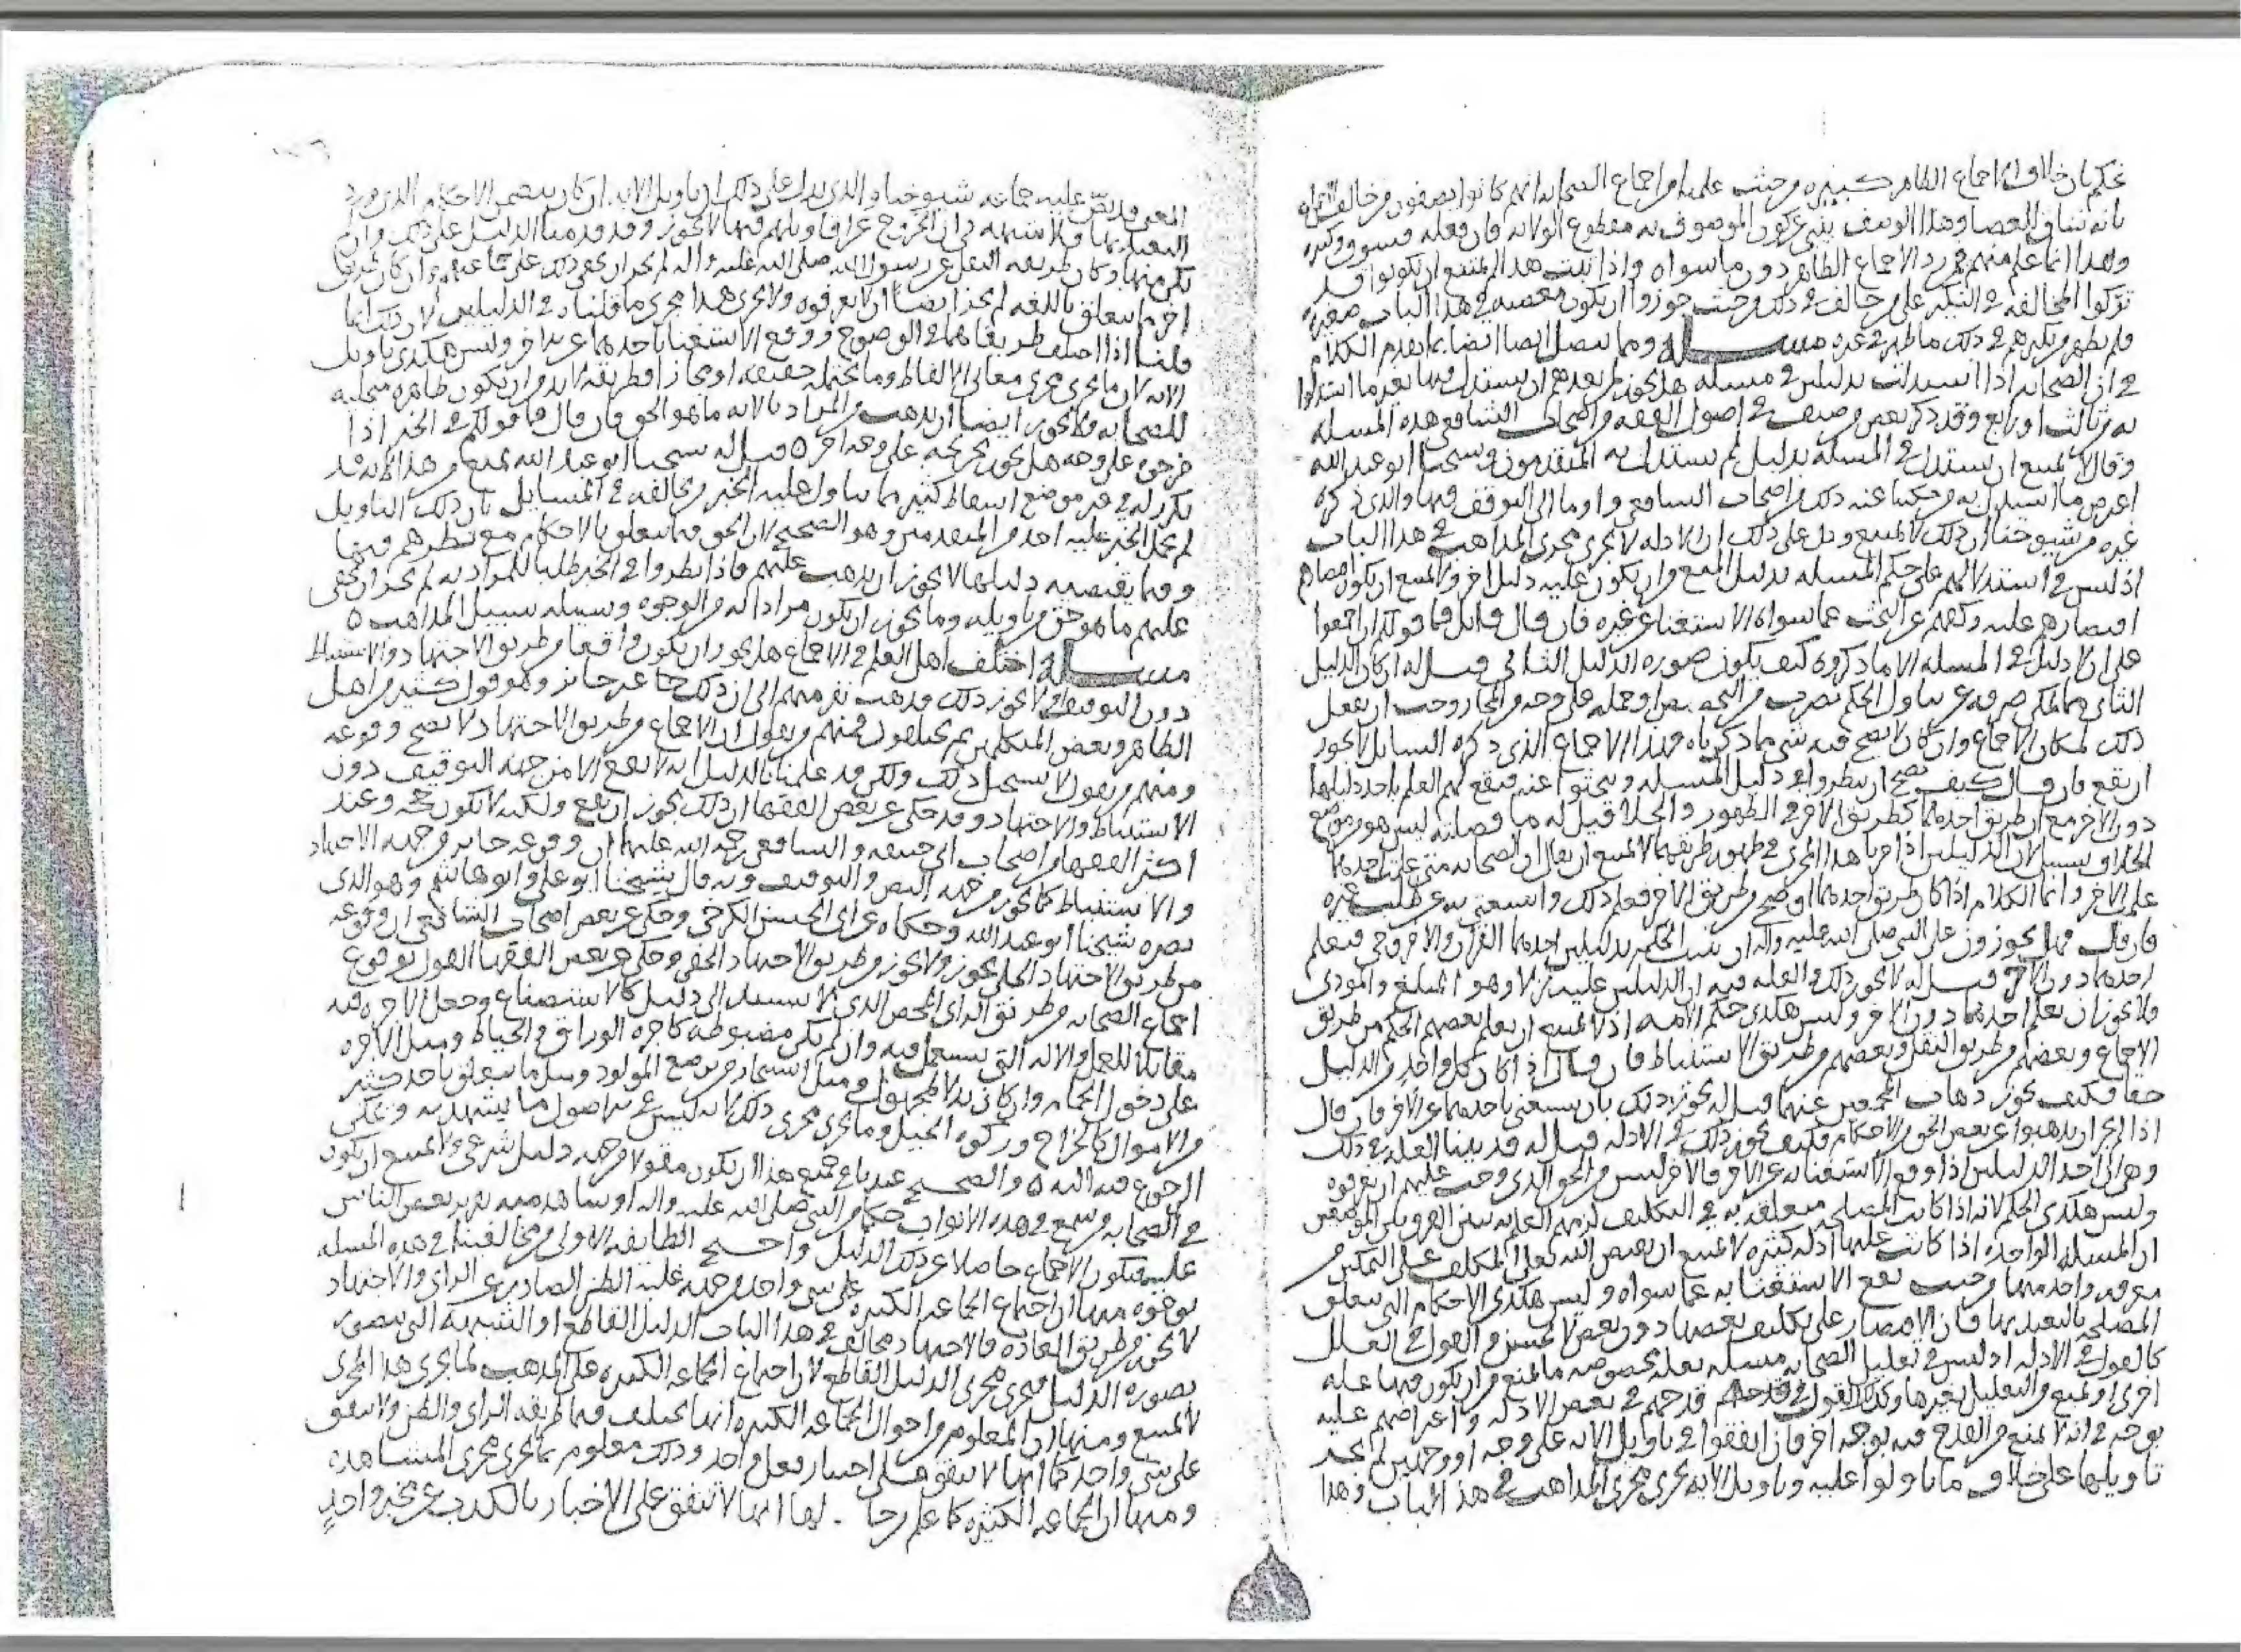 نحكم بان خلاف الاجماع الظاهر كبيره من حيث علمنا من اجماع الصحابه انهم كانوا يصفون من خالف
بانه شاق العصا وهذا الوصف ينبي عن كون الموصوف به مقطوع الولايه فان فعله فسق وكبيره
وهذا انما علم منهم في رد الاجماع الظاهر دون ما سواه واذا ثبت هذا لم يمتنع ان يكونوا قد
تركوا المخالفه في النكير على من خالف في ذلك من حيث جوزوا ان يكون معصيه في هذا الباب صغيره
فلم يظهر من نكيرهم في ذلك ما ظهر في غيره مسله ومما يتصل ايضا بما تقدم الكلام
في ان الصحابه اذا استدلت بدليلين في مسله هل يجوز لمن بعدهم ان يستدل فيها بغير ما استدلوا
به من ثالث او رابع وقد ذكر بعض من صنف في اصول الفقه من اصحاب الشافعي هذه المسله
وقال لا يمتنع ان يستدل في المسله بدليل لم يستدل به المتقدمون وشيخنا ابو عبد الله
اعرض ما استدل به من حكينا عنه ذلك من اصحاب الشافعي واوما الى التوقف فيها والذي ذكره
غيره من شيوخنا ان ذلك لا يمتنع ودل على ذلك ان الادله لا تجري مجرى المذاهب في هذا الباب
اذ ليس في استدلالهم على حكم المسله بدليل المنع من ان يكون عليه دليل اخر ولا يمتنع ان يكون
اقتصارهم عليه وكفهم عن البحث عما سواه للاستغنا عن غيره فان قال قايل فما قولكم ان اجمعوا
على ان لا دليل في المسله الا ما ذكروه كيف يكون صوره الدليل الثاني قيل له ان كان الدليل
الثاني مما يمكن صرفه عن تناول الحكم بضرب من التخصيص او حمله على وجه من المجاز وجب ان يفعل
ذلك لمكان الاجماع وان كان لا يصح فيه شي مما ذكرناه فهذا الاجماع الذي ذكره السايل لا يجوز
ان يقع فان قال كيف يصح ان ينظروا في دليل المسله ويبحثوا عنه فيقع لهم العلم باحد دليلها
دون الاخر مع ان طريق احدهما كطريق الاخر في الظهور والجلا قيل له ما وصلته ليس هو موضع
الخلاف بسبيل لان الدليلين اذا جريا هذا المجرى في ظهور طريقهما لا يمتنع ان يقال ان الصحابه متى علمت احدهما
علمت الاخر وانما الكلام اذا كان طريق احدهما اوضح من طريق الاخر فعلم ذلك واستغنى به عن طلب غيره
فان قال فهل يجوزون على النبي صلى الله عليه واله ان يثبت الحكم بدليلين احدهما القران والاخر وحي فيعلم
احدهما دون الاخر قيل له لا يجوز ذلك والعله فيه ان الدليلين عليه نزلا وهو المبلغ والمودي
فلا يجوز ان يعلم احدهما دون الاخر وليس هكذى حكم الامه اذ لا يمتنع ان يعلم بعضهم الحكم من طريق
الاجماع وبعضهم من طريق النقل وبعضهم من طريق الاستنباط فان قال اذا كان كل واحد من الدليلين
حقا فكيف يجوز ذهاب المجمعين عنهما قيل له يجوز ذلك بان يستغنى باحدهما عن الاخر فان قال
اذا لم يجز ان يذهبوا عن بعض الحق من الاحكام فكيف يجوز ذلك في الادله قيل له قد بينا العله في ذلك
وهي ان احد الدليلين اذا وقع الاستغنا به عن الاخر فالاخر ليس من الحق الذي وجب عليهم ان يعرفوه
وليس هكذى الحكم لانه اذا كانت المصلحه متعلقه به في التكليف لزمهم العلم به
ان المسله الواحده اذا كانت عليها ادله كثيره لا يمتنع ان يعرض الله تعالى المكلف على التمكين من
معرفه واحد منها من حيث يقع الاستغنا به عما سواه وليس هكذى الاحكام التي تتعلق
المصلحه بالتعبد بها فان الاقتصار على تكليف بعضها دون بعض لا يحسن والقول في العلل
كالقول في الادله اذ ليس في تعليل الصحابه مسله بعله مخصوصه ما يمنع من ان يكون فيها عله
اخرى او يمنع من التعليل بغيرها وكذلك القول في قدحهم في بعض الادله واعتراضهم عليه
بوجه في انه لا يمنع من القدح فيه بوجه اخر فان اتفقوا في تاويل الايه على وجه او وجهين لم يجز
تاويلها على خلاف ما تاولوا عليه وتاويل الايه يجري مجرى المذاهب في هذا الباب وهذا
المعنى قد نص عليه جماعه شيوخنا والذي يدل على ذلك ان تاويل الايه ان كان يتضمن الاحكام الذي ورد
التعبد بها فلا شبهه في ان الخروج عن اقاويلهم فيها لا يجوز وقد قدمنا الدليل على ذلك وان
لم يكن منها وكان طريقه النقل عن رسول الله صلى الله عليه واله لم يجز ان يخفى ذلك على جماعتهم وان كان طريقا
اخر مما يتعلق باللغه لم يجز ايضا ان لا يعرفوه ولا يجري هذا مجرى ما قلناه في الدليلين لان ذلك انما
قلنا اذا اختلف طريقاهما في الوضوح ووقع الاستغنا باحدهما عن الاخر وليس هكذى تاويل
الايه لان ما يجري مجرى معاني الالفاظ وما تحتمله حقيقه او مجازا فطريقه لا بد من ان يكون ظاهره متجليه
للصحابه فلا يجوز ايضا ان يذهب من المراد بالايه ما هو الحق فان قال فما قولكم في الخبر اذا
خرجوه على وجه هل يجوز تخريجه على وجه اخر ٥ قيل له شيخنا ابو عبد الله يمنع من هذا لانه قد
تكرر له في غير موضع اسقاط كثير مما يتاول عليه الخبر من خالفه في المسايل بان ذلك التاويل
لم يحمل الخبر عليه احد من المتقدمين وهو الصحيح لان الحق فيما يتعلق بالاحكام مع نظرهم فيها
وفيما يقتضيه دليلها لا يجوز ان يذهب عليهم فاذا نظروا في الخبر طلبا للمراد به لم يجز ان يخفى
عليهم ما هو حق من تاويله وما يجوز ان يكون مرادا له من الوجوه وسبيله سبيل المذاهب ٥
مسله اختلف اهل العلم في الاجماع هل يجوز ان يكون واقعا من طريق الاجتهاد والاستنباط
دون التوقيف او لا يجوز ذلك فذهب نفر منهم الى ان ذلك غير جائز وهو قول كثير من اهل
الظاهر وبعض المتكلمين ثم يختلفون فمنهم من يقول ان الاجماع من طريق الاجتهاد لا يصح وقوعه
ومنهم من يقول لا يستحيل ذلك ولكن قد علمنا بالدليل انه لا يقع الا من جهه التوقيف دون
الاستنباط والاجتهاد وقد حكي عن بعض الفقها ان ذلك يجوز ان يقع ولكنه لا يكون حجه وعند
اكثر الفقها من اصحاب ابي حنيفه والشافعي رحمه الله عليهما ان وقوعه جايز من جهه الاجتهاد
والاستنباط كما يجوز من جهه النص والتوقيف وبه قال شيخنا ابو علي وابو هاشم وهو الذي
نصره شيخنا ابو عبد الله وحكاه عن ابي الحسن الكرخي وحكى عن بعض اصحاب الشافعي ان وقوعه
من طريق الاجتهاد الجلي يجوز ولا يجوز من طريق الاجتهاد الخفي وحكى عن بعض الفقها القول بوقوع
اجماع الصحابه من طريق الراي المحض الذي لا يستند الى دليل كالاستصناع وجعل الاجره فيه
مقابله للعمل والاله التي تستعمل فيه وان لم يكن مضبوطه كاجره الوراق والخياط ومثل الاجره
على دخول الحمام وان كان بدلا لمجهول ومثل استيجار من يرضع المولود ومثل ما يتعلق باخذ كثير
من الاموال كالخراج وزكوه الخيل وما يجري مجرى ذلك لانه ليس في اصول ما يشهد به ويمكن
الرجوع فيه اليه ٥ والصحيح عندنا في جميع هذا ان يكون مقولا من جهه دليل شرعي ولا يمتنع ان يكون
في الصحابه من سمع في هذه الابواب حكما من النبي صلى الله عليه واله او شاهد منه تقرير بعض الناس
عليه فيكون الاجماع حاصلا عن ذلك الدليل واحتج الطايفه الاولى من مخالفينا في هذه المسله
بوجوه منها ان اجتماع الجماعه الكثيره على شي واحد من جهه غلبه الظن الصادر عن الراي والاجتهاد
لا يجوز من طريق العاده فالاجتهاد مخالف في هذا الباب الدليل القاطع او الشبهه التي تتصور
بصوره الدليل فتجري مجرى الدليل القاطع لان اجتماع الجماعه الكثيره على المذهب لما يجري هذا المجرى
لا يمتنع ومنها ان المعلوم من احوال الجماعه الكثيره انها تختلف فيما طريقه الراي والظن ولا تتفق
على شي واحد كما انها لا تتفق على اختيار فعل واحد وذلك معلوم بما يجري مجرى المشاهده
ومنها ان الجماعه الكثيره كما علم من حالها انها لا تتفق على الاخبار بالكذب عن مخبر واحد